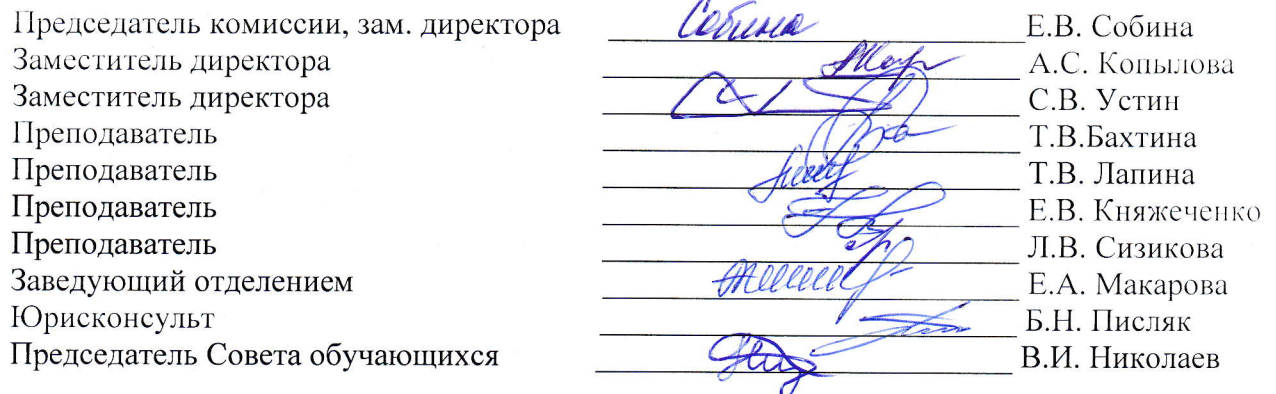 Председатель комиссии, зам. директора Собина Е.В. Собина
Заместитель директора А.С. Копылова
Заместитель директора С.В. Устин
Преподаватель Т.В.Бахтина
Преподаватель Т.В. Лапина
Преподаватель Е.В. Княжеченко
Преподаватель Л.В. Сизикова
Заведующий отделением Е.А. Макарова
Юрисконсульт Б.Н. Писляк
Председатель Совета обучающихся В.И. Николаев